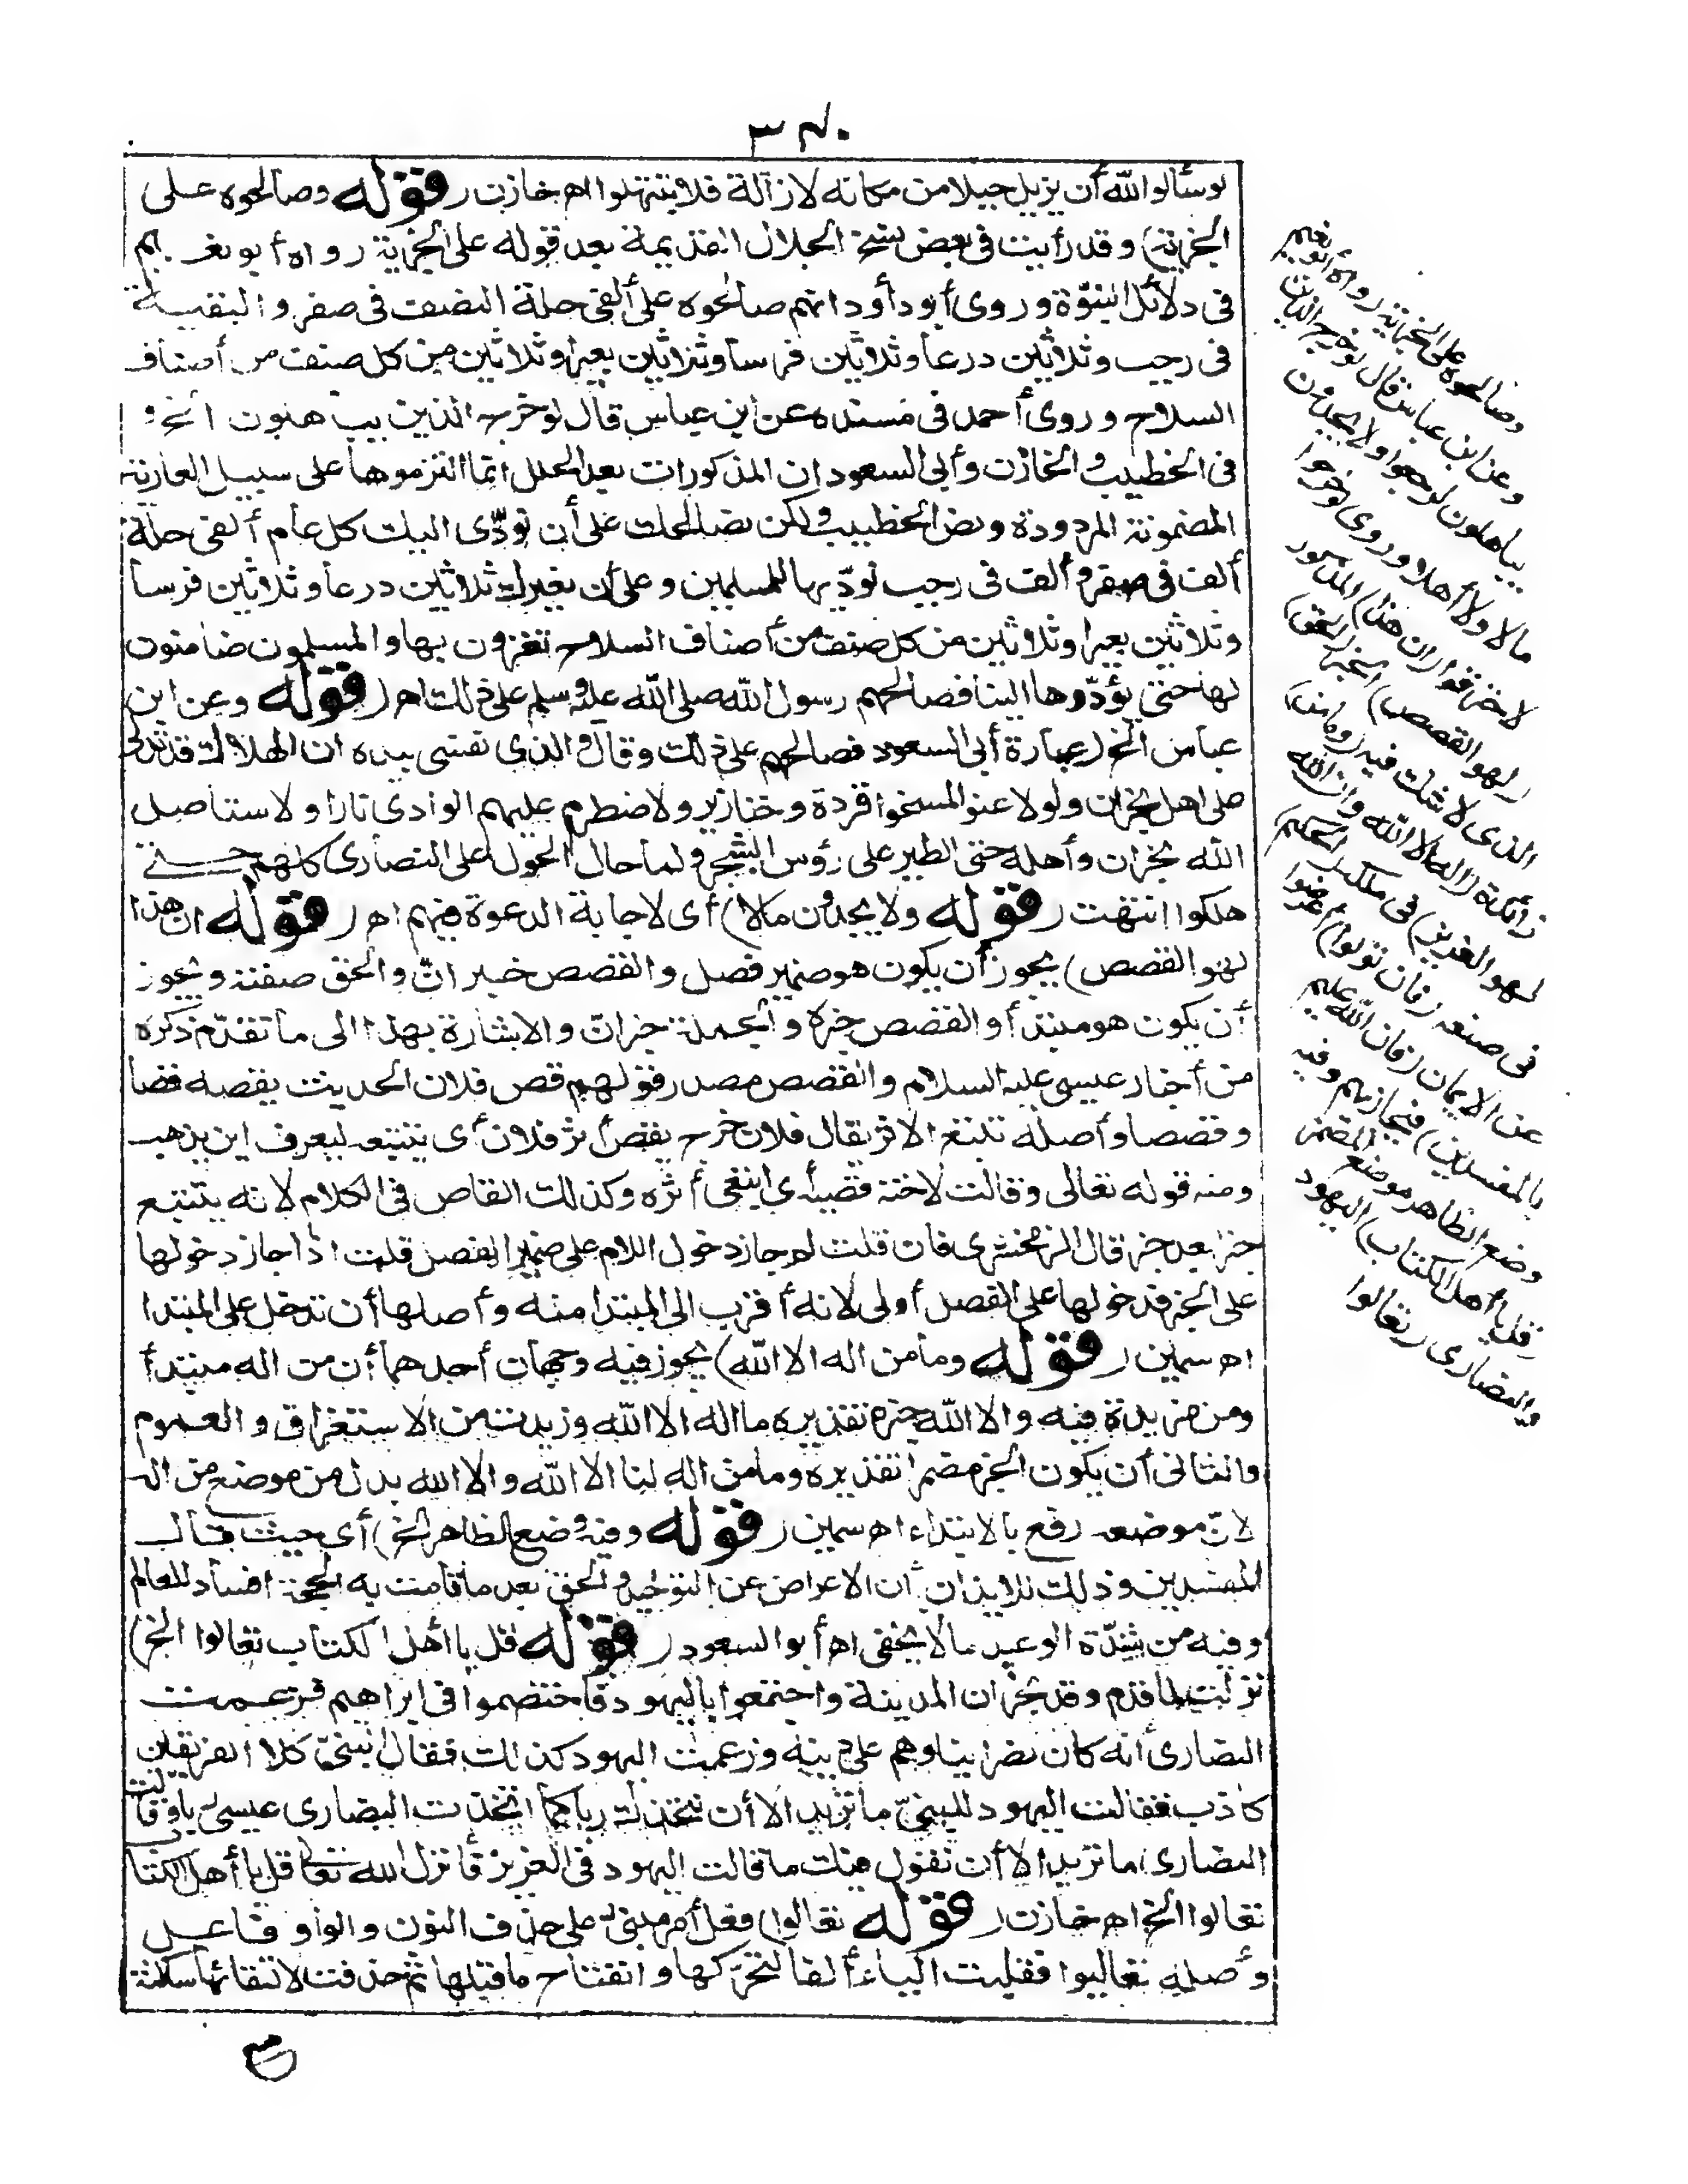 ٣٤٠
لو سألوا الله أن يزيل جبلا من مكانه لازاله فلا تبتهلوا اه خازن (قوله وصالحوه على
الجزية) وقد رأيت في بعض نسخ الجلال القديمة بعد قوله على الجزية رواه أبو نعيم
في دلائل النبوّة وروى أبو داود انهم صالحوه على ألفى حلة النصف في صفر والبقية
في رجب وثلاثين درعا وثلاثين فرسا وثلاثين بعيرا وثلاثين من كل صنف من أصناف
السلاح وروى أحمد في مسنده عن ابن عباس قال لو خرج الذين يباهلون الخ و
في الخطيب والخازن وأبي السعود ان المذكورات بعد الحلل انما التزموها على سبيل العارية
المضمونة المردودة ونص الخطيب ولكن نصالحك على أن نؤدّى اليك كل عام ألفى حلة
ألف في صفر وألف في رجب نؤدّيها للمسلمين وعلى أن نعيرك ثلاثين درعا وثلاثين فرسا
وثلاثين بعيرا وثلاثين من كل صنف من أصناف السلاح تغزون بها والمسلمون ضامنون
لها حتى يؤدّوها الينا فصالحهم رسول الله صلى الله عليه وسلم على ذلك اه (قوله وعن ابن
عباس الخ) عبارة أبي السعود فصالحهم على ذلك وقال والذي نفسي بيده ان الهلاك قد تدلى
على اهل نجران ولو لاعنوا لمسخوا قردة وخنازير ولاضطرم عليهم الوادى نارا ولاستأصل
الله نجران وأهله حتى الطير على رؤس الشجر ولما حال الحول على النصارى كلهم حتى
هلكوا انتهت (قوله ولا يجدون مالا) أى لاجابة الدعوة فيهم اه (قوله ان هذا
لهو القصص) يجوز أن يكون هو ضمير فصل والقصص خبر انّ والحق صفته ويجوز
أن يكون هو مبتدأ والقصص خبره والجملة خبر انّ والاشارة بهذا الى ما تقدّم ذكره
من أخبار عيسى عليه السلام والقصص مصدر قولهم قص فلان الحديث يقصه قصا
وقصصا وأصله تتبع الاثر يقال فلان خرج يقص أثر فلان أى يتتبعه ليعرف اين يذهب
ومنه قوله تعالى وقالت لاخته قصيه أى اتبعى أثره وكذلك القاص في الكلام لانه يتتبع
خبرا بعد خبر قال الزمخشرى فان قلت لم جاز دخول اللام على ضمير الفصل قلت اذا جاز دخولها
على الخبر فدخولها على الفصل أولى لانه أقرب الى المبتدا منه وأصلها أن تدخل على المبتدا
اه سمين (قوله وما من اله الا الله) يجوز فيه وجهان أحدهما أن من اله مبتدأ
ومن مزيدة فيه والا الله خبره تقديره ما اله الا الله وزيدت من الاستغراق والعموم
والثاني أن يكون الخبر مضمرا تقديره وما من اله لنا الا الله والا الله بدل من موضع من اله
لانّ موضعه رفع بالابتداء اه سمين (قوله وفيه وضع الظاهر الخ) أى حيث قال
المفسدين وذلك للايذان أن الاعراض عن التوحيد والحق بعد ما قامت به الحجة افساد للعالم
وفيه من شدّة الوعيد ما لا يخفى اه أبو السعود (قوله قل يا أهل الكتاب تعالوا الخ)
نزلت لما قدم وفد نجران المدينة واجتمعوا باليهود فاختصموا في ابراهيم فزعمت
النصارى أنه كان نصرانيا وهم على دينه وزعمت اليهود كذلك فقال النبيّ كلا الفريقين
كاذب فقالت اليهود للنبيّ ما تريد الا أن نتخذك ربا كما اتخذت النصارى عيسى ربا وقالت
النصارى ما تريد الا أن نقول فيك ما قالت اليهود في العزير فأنزل الله تعالى قل يا أهل الكتاب
تعالوا الخ اه خازن (قوله تعالوا) فعل أمر مبنيّ على حذف النون والواو فاعل
وأصله تعاليوا فقلبت الياء ألفا لتحرّكها وانفتاح ما قبلها ثم حذفت لالتقائها ساكنة
وصالحوه على الجزية رواه أبو نعيم
وعن ابن عباس قال لو خرج الذين
يباهلون لرجعوا ولا يجدون
مالا ولا أهلا وروى لو خرجوا
لاحترقوا (ان هذا) المذكور
(لهو القصص) الخبر (الحق)
الذى لا شك فيه (وما من)
زائدة (اله الا الله وان الله
لهو العزيز) في ملكه (الحكيم)
في صنعه (فان تولوا) أعرضوا
عن الايمان (فان الله عليم
بالمفسدين) فيجازيهم وفيه
وضع الظاهر موضع المضمر
(قل يا أهل الكتاب) اليهود
والنصارى (تعالوا